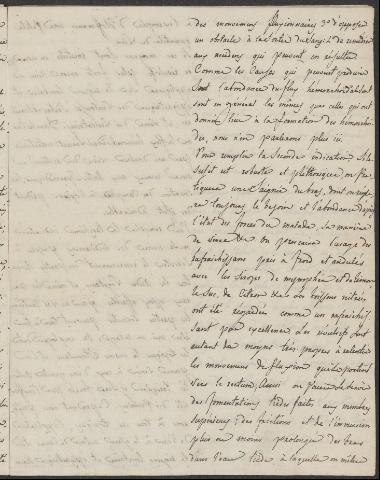 des mouvemens fluxionnaires 3o d'opposer
un obstacle à la sortie du sang 4o de remédier
aux accidens qui peuvent en résulter
Comme les causes qui peuvent produire
l'abondance du flux hémorrhoïdal
sont en general les mêmes que celles qui ont
donné lieu à la formation des hémorrhoï
des, nous n'en parlerons plus ici.
Pour remplir la Seconde indication, Si le
sujet est robuste et pléthorique on pra
tiquera une Saignée du bras, dont on règle
ra toujours le besoin et l'abondance d'après
l'état des forces du malade, sa manière
de vivre &a On prescrira l'usage des
rafraichissans pris à froid et édulcorés
avec les Sirops de nymphea et de limon
le Suc de Citron &a les boissons nitrées
ont été regardées comme un rafraichis
sant par excellence Les revulsifs sont
autant de moyens très propres à ralentir
les mouvemens de fluxion qui se portent
vers le rectum, Ainsi on pourra se servir
des fomentations tièdes faites aux membres
supérieurs, des frictions et de l'immersion
plus ou moins prolongée des bras
dans l'eau tiède à laquelle on mêlera